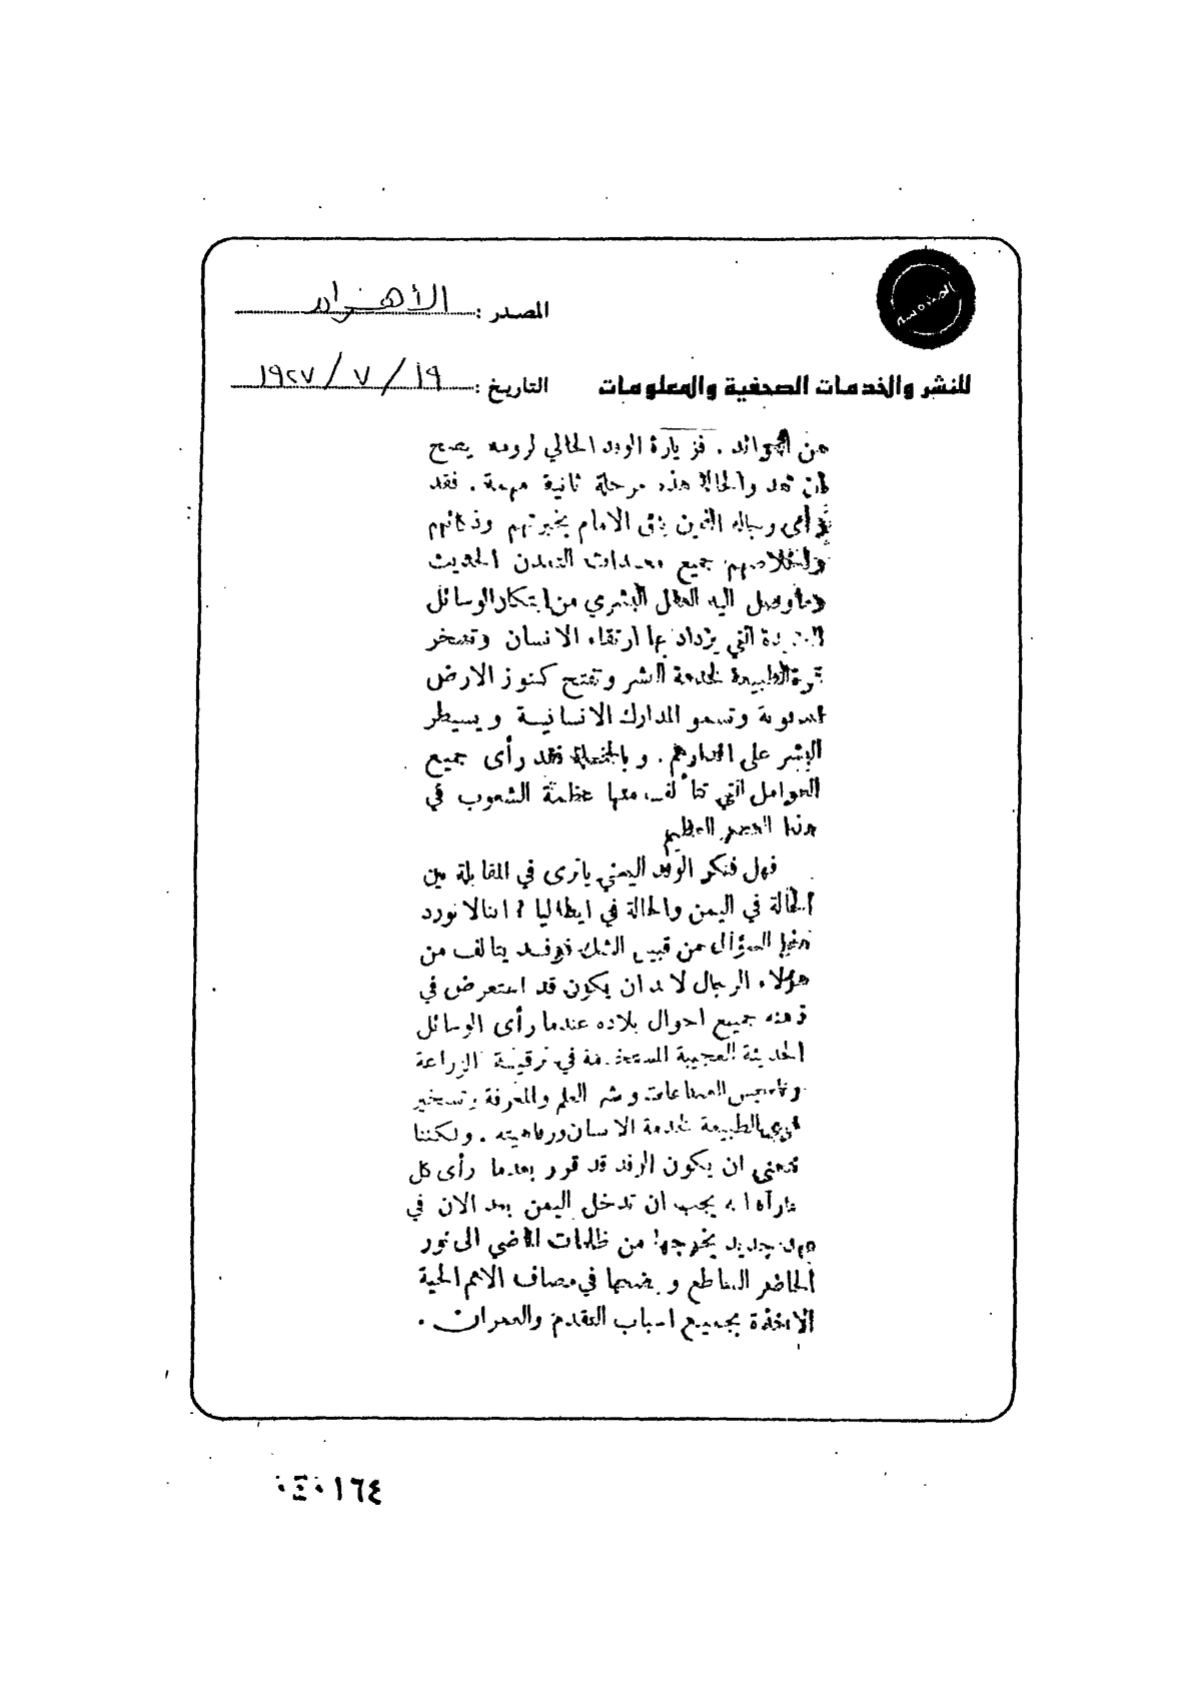 المصدر : الأهرام
للنشر والخدمات الصحفية والمعلومات
التاريخ : ١٩ / ٧ / ١٩٢٧
من الجوائد . فزيارة الوفد الحالي لرومه يصح
ان تعد والحالة هذه مرحلة ثانية مهمة . فقد
رأى رجاله الذين يثق الامام بخبرتهم وذكائهم
واخلاصهم جميع معدات التمدن الحديث
وما وصل اليه العقل البشري من ابتكار الوسائل
الجديدة التي يزداد بها ارتقاء الانسان وتسخر
قوة الطبيعة لخدمة البشر وتفتح كنوز الارض
وتسمو المدارك الانسانية ويسيطر
البشر على اقدارهم . وبالجملة فقد رأى جميع
العوامل التي تتألف منها عظمة الشعوب في
هذا العصر العظيم
فهل فكر الوفد اليمني ياترى في المقابلة بين
الحالة في اليمن والحالة في ايطاليا ؟ اننا لا نورد
هذا السؤال من قبيل الشك فوفد يتألف من
هؤلاء الرجال لا بد ان يكون قد استعرض في
ذهنه جميع احوال بلاده عندما رأى الوسائل
الحديثة العجيبة المستخدمة في ترقية الزراعة
وتأسيس الصناعات ونشر العلم والمعرفة وتسخير
قوى الطبيعة لخدمة الانسان ورفاهيته . ولكننا
نتمنى ان يكون الوفد قد قرر بعدما رأى كل
مارآه انه يجب ان تدخل اليمن بعد الان في
عهد جديد يخرجها من ظلمات الماضي الى نور
الحاضر الساطع ويضعها في مصاف الامم الحية
الآخذة بجميع اسباب التقدم والعمران .